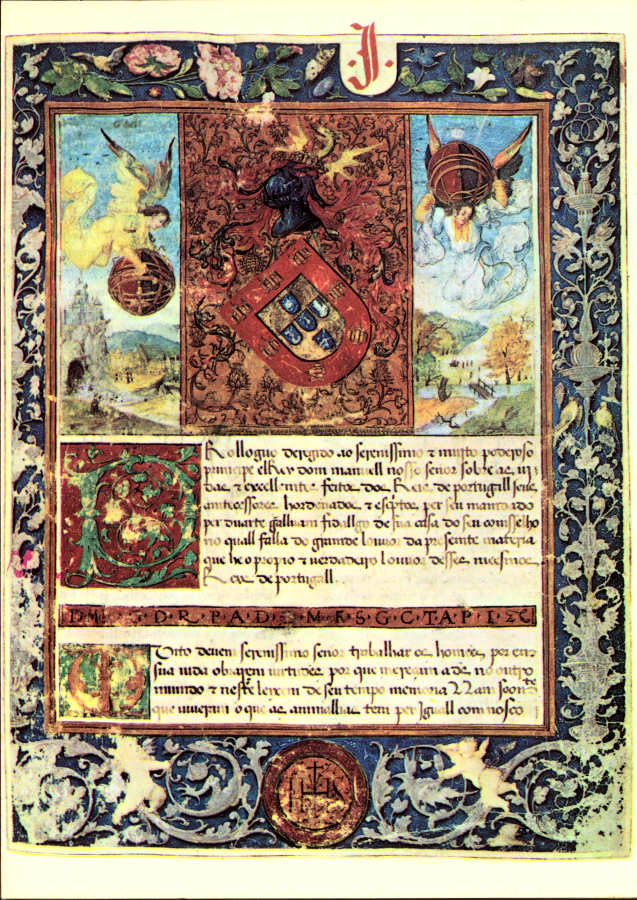 J.
Prollogno deregido ao serenissimo & muyto poderoso
principe elRey dom manuell nosso señor sobre as vi
das & excellentes feitos dos Reis de portugall seus
antecessores hordenados & escptos per seu mandado
per duarte galluam fidallgo de sua casa do seu consselho
no quall falla do grande louvor da presemte materia
que he o propio & verdadeiro louvor desses meesmos
Reix de portugall.
D. M. G. D. R. P. A. D. M. F. S. G. C. T. A. P. I. & C
Muito devem serenissimo señor trabalhar os homeẽs por em
sua vida obrarem virtudes por que mereçam a deos no outro
mundo & neste leixem de seu tempo memoria Nam soomte
que viverom o que as animallias tem per iguall com nosco
IHS